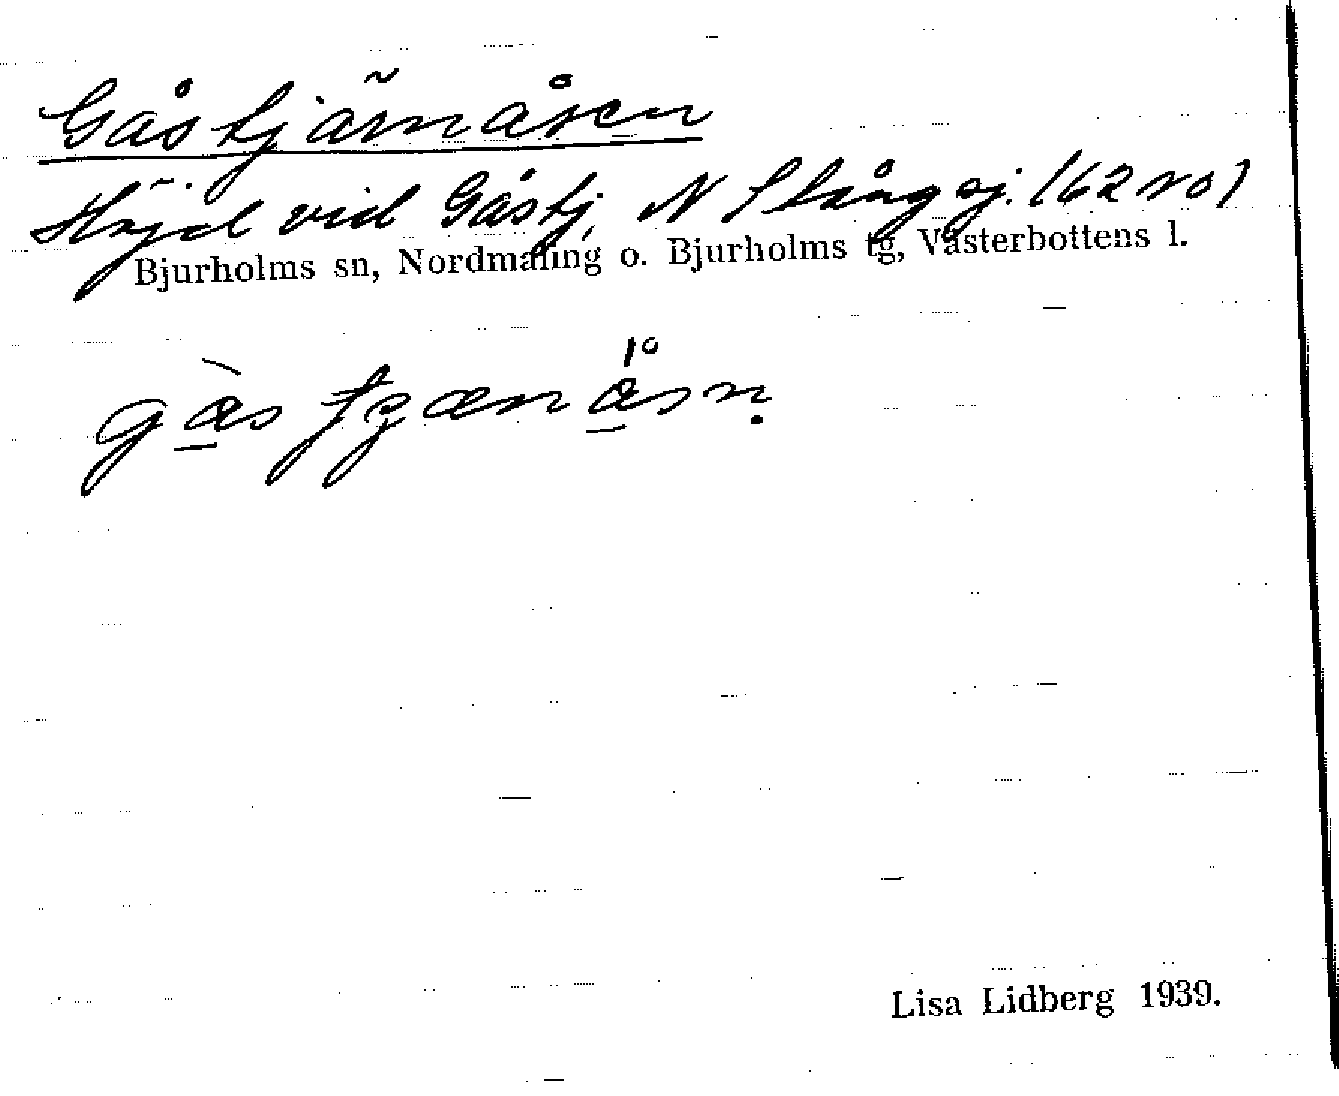 Gåstjärnåsen
Höjd vid Gåstj. N Slångsj. (62 no)
Bjurholms sn, Nordmaling o. Bjurholms tg, Västerbottens l.
Lisa Lidberg 1939.